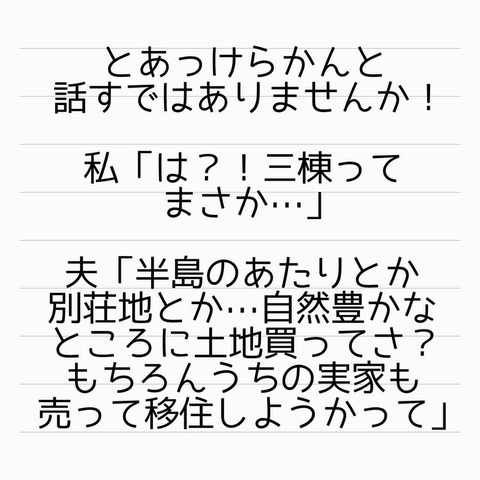 とあっけらかんと
話すではありませんか！
私「は？！三棟って
まさか…」
夫「半島のあたりとか
別荘地とか…自然豊かな
ところに土地買ってさ？
もちろんうちの実家も
売って移住しようかって」